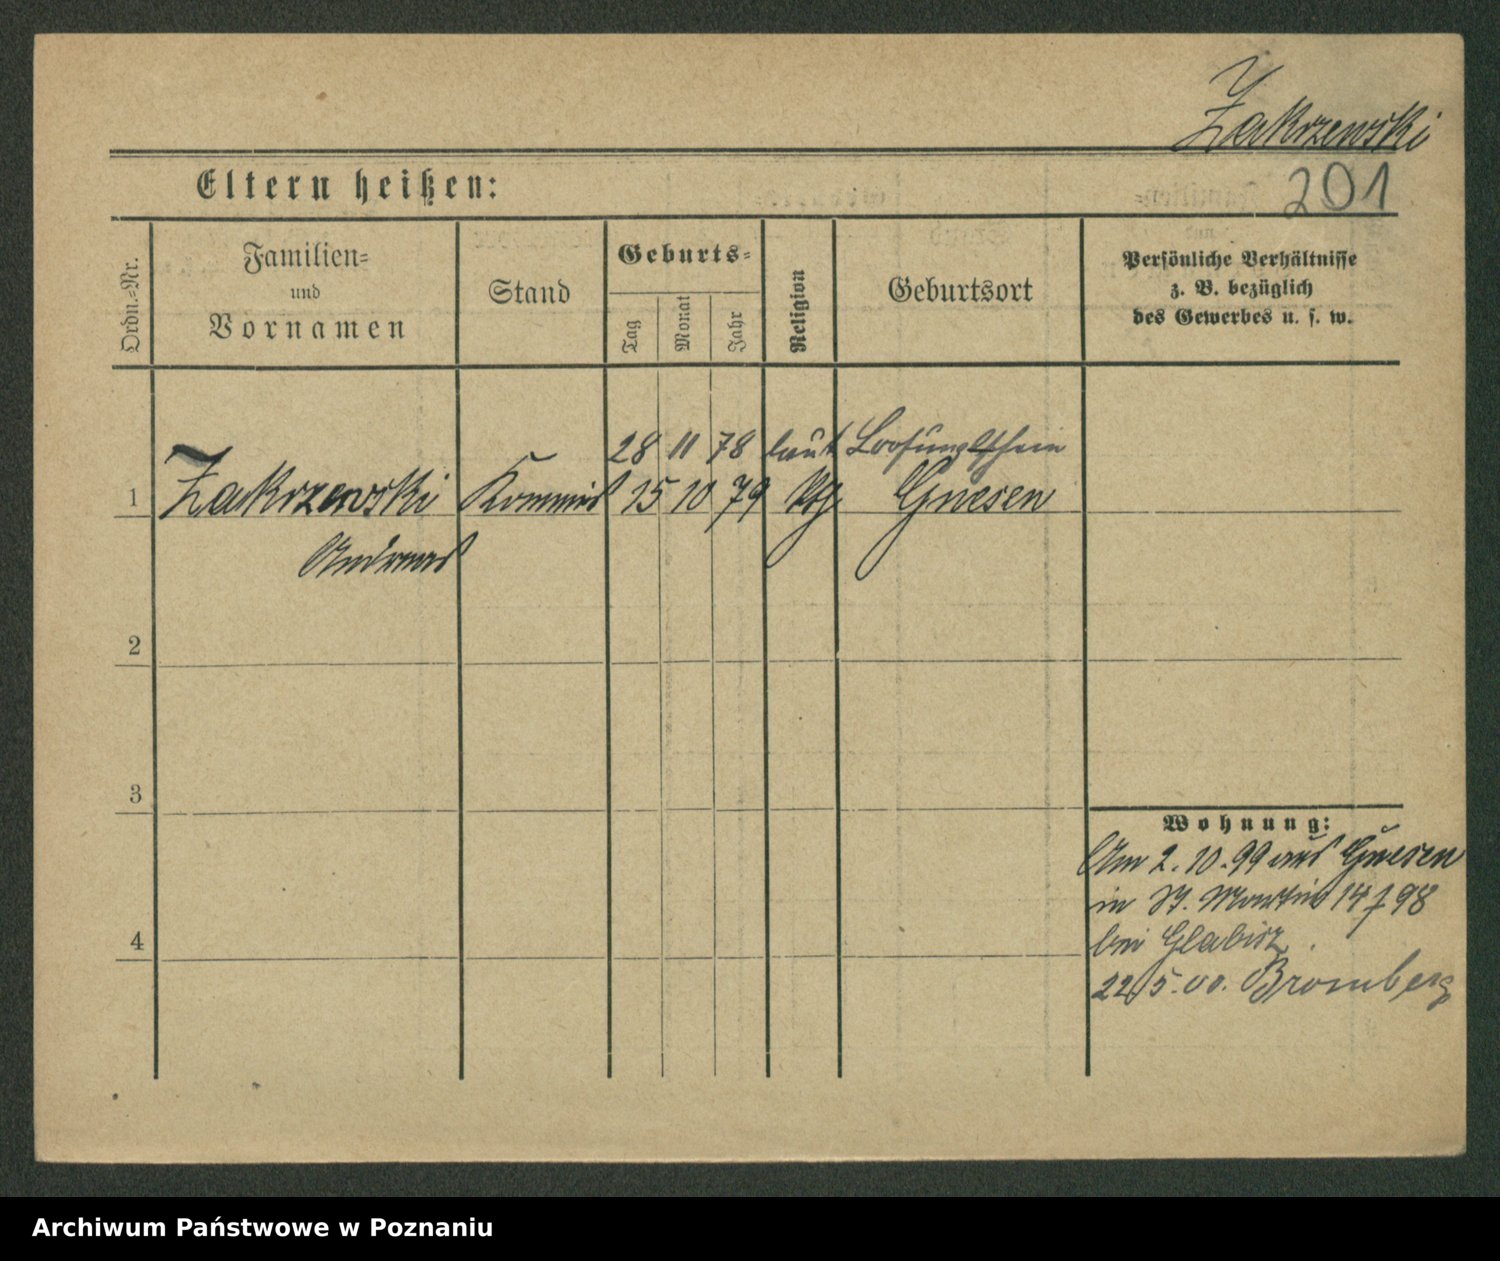 Zakrzewski
Eltern heißen:
201
Ordn.=Nr.
Familien=
und
Vornamen
Stand
Geburts=
Tag
Monat
Jahr
Religion
Geburtsort
Persönliche Verhältnisse
z. B. bezüglich
des Gewerbes u. s. w.
28 11 78 laut Loosungsschein
1 Zakrzewski Kommis 15 10 79 ktg Gnesen
Andreas
2
3
4
Wohnung:
Am 2.10.99 aus Gnesen
in St. Martin 14 f 98
bei Glabisz
22/5.00. Bromberg
Archiwum Państwowe w Poznaniu